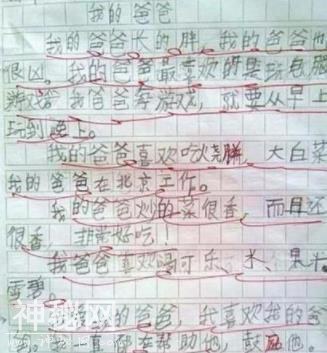 我的爸爸
我的爸爸长的胖。我的爸爸也
很凶。我的爸爸最喜欢的是玩电脑
游戏。我爸爸考游戏,就要从早上
玩到晚上。
我的爸爸喜欢吃火烧胼,大白菜
我的爸爸在北京工作。
我的爸爸炒的菜很香,而且还
很香,非常好吃!
我爸爸喜欢喝可乐、水、果
雪碧
的爸爸,我喜欢我的爸
我一直都在帮助他,鼓 他。